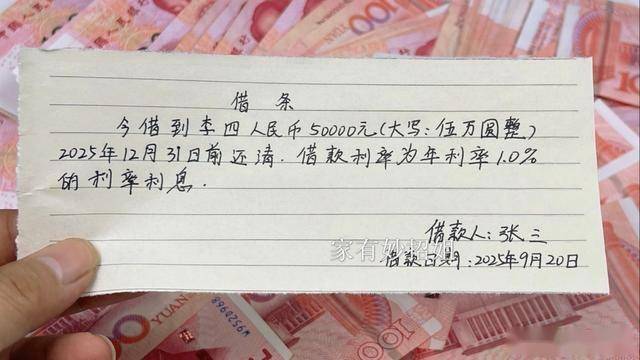 借条
今借到李四人民币50000元(大写:伍万圆整)
2025年12月31日前还清.借款利率为年利率1.0%
的利率利息.
借款人:张三
家有妙招姐
借款日期:2025年9月20日
YUAN
100
W9520968